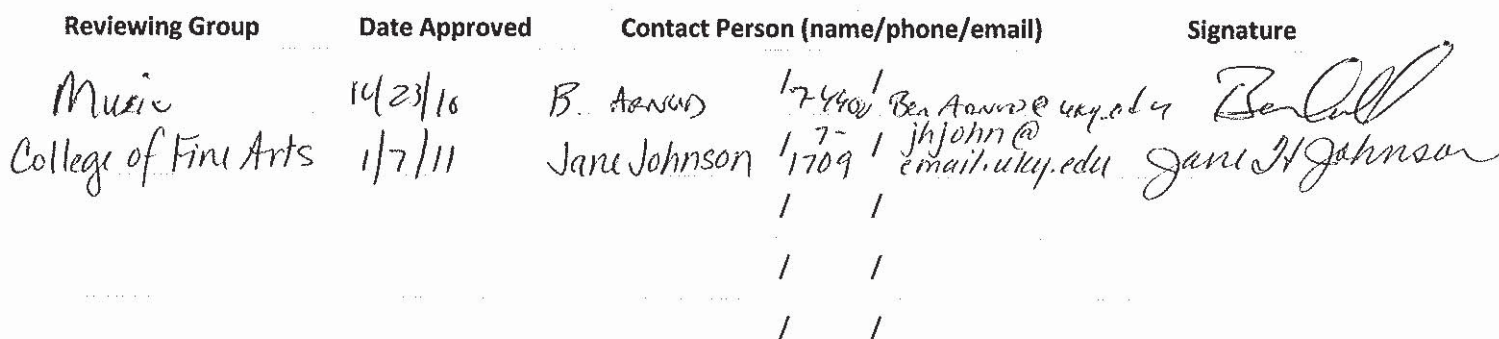 Reviewing Group Date Approved Contact Person (name/phone/email) Signature
Music B. Arnold / / Ben Arnold@uky.edu
College of Fine Arts 1/7/11 Jane Johnson / 7-1709 / jhjohn@email.uky.edu Jane H Johnson
/ /
/ /
/ /